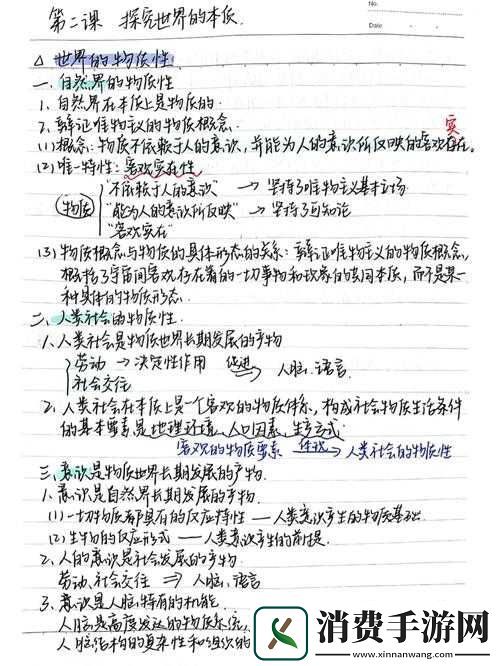 No.
Date
第二课 探究世界的本质.
△ 世界的物质性
一. 自然界的物质性
1. 自然界在本质上是物质的.
2. 辩证唯物主义的物质概念.
实
(1) 概念: 物质不依赖于人的意识, 并能为人的意识所反映的客观存在.
(2) 唯一特性: 客观实在性
"不依赖于人的意识" → 坚持了唯物主义基本立场.
物质 "能为人的意识所反映" → 坚持了可知论
"客观实在"
(3) 物质概念与物质的具体形态的关系: 辩证唯物主义的物质概念,
概括了宇宙间客观存在着的一切事物和现象的共同本质, 而不是某一
种具体的物质形态.
二. 人类社会的物质性.
1. 人类社会是物质世界长期发展的产物
劳动 → 决定性作用 促进 人脑. 语言.
社会交往
2. 人类社会在本质上是一个客观的物质体系, 构成社会物质生活条件
的基本要素是地理环境、人口因素、生产方式.
客观的物质要素 体现→ 人类社会的物质性
三. 意识是物质世界长期发展的产物.
1. 意识是自然界长期发展的产物.
(1) 一切物质都具有的反应特性 — 人类意识产生的物质基础.
(2) 生物的反应形式 — 人类意识产生的前提.
2. 人的意识是社会发展的产物
劳动、社会交往 ⇒ 人脑、语言
3. 意识是人脑特有的机能.
人脑是高度发达的物质系统,
人脑结构的复杂性和组织的
消费手游网
www.xinnanwang.com